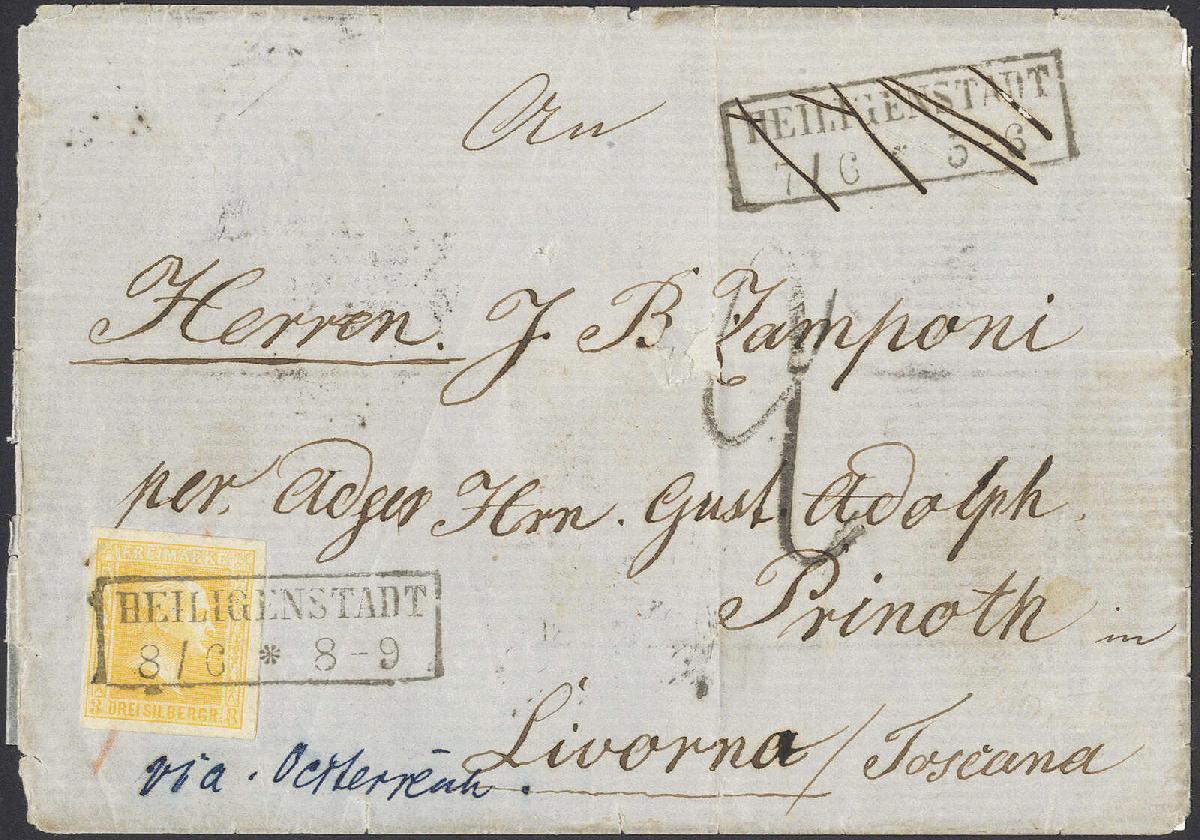 An
HEILIGENSTADT
7/6 * 5-6
Herren. J. B. Zamponi
per. Adger Hrn. Gust Adolph.
Prinoth in
FREIMARKE
HEILIGENSTADT
8/6 * 8-9
3 DREI SILBERGR. 3
Livorna / Toscana
via. Oesterreich.